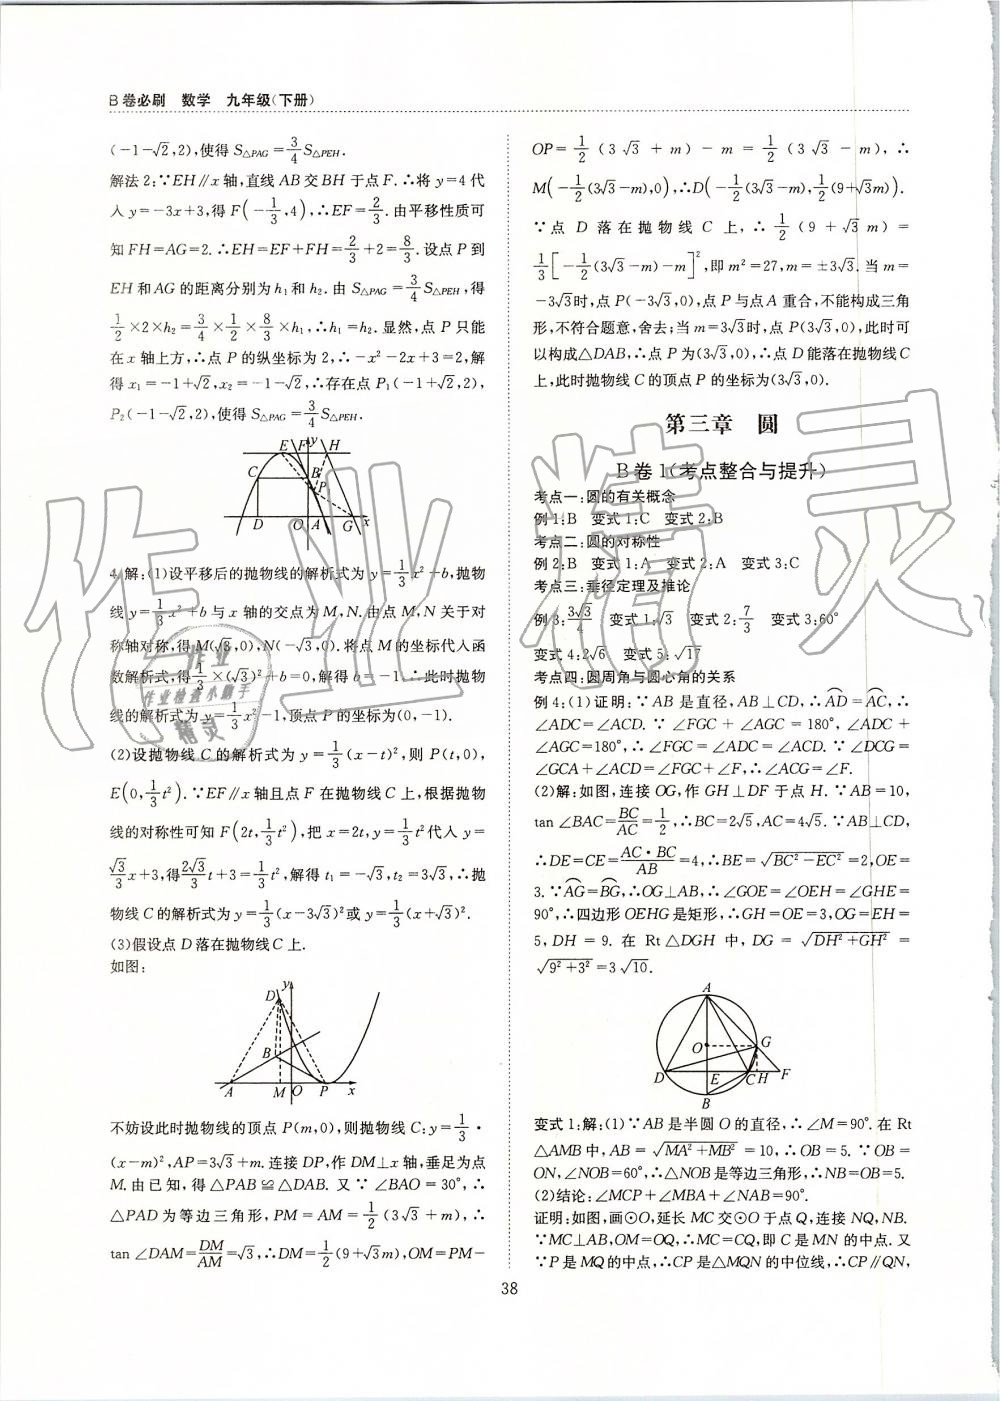 B卷必刷　数学　九年级(下册)
(-1-√2,2),使得 S△PAG=3/4 S△PEH.
解法2:∵EH∥x轴,直线AB交BH于点F.∴将y=4代
入y=-3x+3,得F(-1/3,4),∴EF=2/3.由平移性质可
知FH=AG=2.∴EH=EF+FH=2/3+2=8/3.设点P到
EH和AG的距离分别为h₁和h₂.由S△PAG=3/4 S△PEH,得
1/2×2×h₂=3/4×1/2×8/3×h₁,∴h₁=h₂.显然,点P只能
在x轴上方,∴点P的纵坐标为2,∴-x²-2x+3=2,解
得x₁=-1+√2,x₂=-1-√2,∴存在点P₁(-1+√2,2),
P₂(-1-√2,2),使得S△PAG=3/4 S△PEH.
E F y H
C B
P
D O A G x
4.解:(1)设平移后的抛物线的解析式为y=1/3 x²+b,抛物
线y=1/3 x²+b与x轴的交点为M,N.由点M,N关于对
称轴对称,得M(√3,0),N(-√3,0).将点M的坐标代入函
数解析式,得1/3×(√3)²+b=0,解得b=-1.∴此时抛物
线的解析式为y=1/3 x²-1,顶点P的坐标为(0,-1).
(2)设抛物线C的解析式为y=1/3(x-t)²,则P(t,0),
E(0,1/3 t²).∵EF∥x轴且点F在抛物线C上,根据抛物
线的对称性可知F(2t,1/3 t²),把x=2t,y=1/3 t²代入y=
√3/3 x+3,得2√3/3 t+3=1/3 t²,解得t₁=-√3,t₂=3√3,∴抛
物线C的解析式为y=1/3(x-3√3)²或y=1/3(x+√3)².
(3)假设点D落在抛物线C上.
如图:
D y
B
A M O P x
不妨设此时抛物线的顶点P(m,0),则抛物线C:y=1/3·
(x-m)²,AP=3√3+m.连接DP,作DM⊥x轴,垂足为点
M.由已知,得△PAB≌△DAB.又∵∠BAO=30°,∴
△PAD为等边三角形,PM=AM=1/2(3√3+m),∴
tan∠DAM=DM/AM=√3,∴DM=1/2(9+√3m),OM=PM-
OP=1/2(3√3+m)-m=1/2(3√3-m),∴
M(-1/2(3√3-m),0),∴D(-1/2(3√3-m),1/2(9+√3m)).
∵点D落在抛物线C上,∴1/2(9+√3m)=
1/3[-1/2(3√3-m)-m]²,即m²=27,m=±3√3.当m=
-3√3时,点P(-3√3,0),点P与点A重合,不能构成三角
形,不符合题意,舍去;当m=3√3时,点P(3√3,0),此时可
以构成△DAB,∴点P为(3√3,0),∴点D能落在抛物线C
上,此时抛物线C的顶点P的坐标为(3√3,0).
第三章　圆
B卷1(考点整合与提升)
考点一:圆的有关概念
例1:B　变式1:C　变式2:B
考点二:圆的对称性
例2:B　变式1:A　变式2:A　变式3:C
考点三:垂径定理及推论
例3:3√3/4　变式1:√3　变式2:7/3　变式3:60°
变式4:2√6　变式5:√17
考点四:圆周角与圆心角的关系
例4:(1)证明:∵AB是直径,AB⊥CD,∴⌒AD=⌒AC,∴
∠ADC=∠ACD.∵∠FGC+∠AGC=180°,∠ADC+
∠AGC=180°,∴∠FGC=∠ADC=∠ACD.∵∠DCG=
∠GCA+∠ACD=∠FGC+∠F,∴∠ACG=∠F.
(2)解:如图,连接OG,作GH⊥DF于点H.∵AB=10,
tan∠BAC=BC/AC=1/2,∴BC=2√5,AC=4√5.∵AB⊥CD,
∴DE=CE=AC·BC/AB=4,∴BE=√(BC²-EC²)=2,OE=
3.∵⌒AG=⌒BG,∴OG⊥AB,∴∠GOE=∠OEH=∠GHE=
90°,∴四边形OEHG是矩形,∴GH=OE=3,OG=EH=
5,DH=9.在Rt△DGH中,DG=√(DH²+GH²)=
√(9²+3²)=3√10.
A
O G
D E C H F
B
变式1:解:(1)∵AB是半圆O的直径,∴∠M=90°.在Rt
△AMB中,AB=√(MA²+MB²)=10,∴OB=5.∵OB=
ON,∠NOB=60°,∴△NOB是等边三角形,∴NB=OB=5.
(2)结论:∠MCP+∠MBA+∠NAB=90°.
证明:如图,画⊙O,延长MC交⊙O于点Q,连接NQ,NB.
∵MC⊥AB,OM=OQ,∴MC=CQ,即C是MN的中点.又
∵P是MQ的中点,∴CP是△MQN的中位线,∴CP∥QN,
38
作业精灵
作业
作业检查小助手
精灵